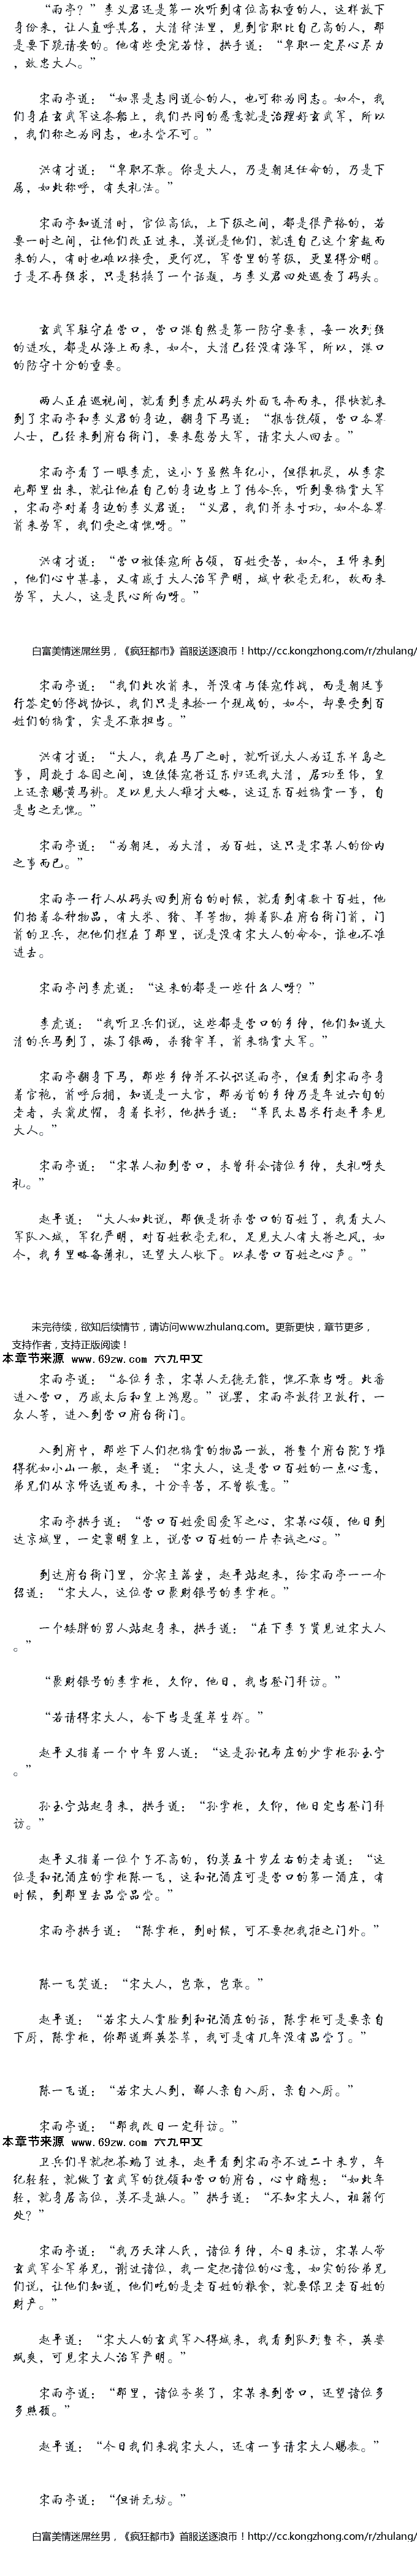 “雨亭？”李义君还是第一次听到有位高权重的人，这样放下
身份来，让人直呼其名，大清律法里，见到官职比自己高的人，那
是要下跪请安的。他有些受宠若惊，拱手道：“卑职一定尽心尽力
，效忠大人。”
宋雨亭道：“如果是志同道合的人，也可称为同志。如今，我
们身在玄武军这条船上，我们共同的愿意就是治理好玄武军，所以
，我们称之为同志，也未尝不可。”
洪有才道：“卑职不敢。你是大人，乃是朝廷任命的，乃是下
属，如此称呼，有失礼法。”
宋雨亭知道清时，官位高低，上下级之间，都是很严格的，若
要一时之间，让他们改正过来，莫说是他们，就连自己这个穿越而
来的人，有时也难以接受，更何况，军营里的等级，更显得分明。
于是不再强求，只是转换了一个话题，与李义君四处巡查了码头。
玄武军驻守在营口，营口港自然是第一防守要素，每一次列强
的进攻，都是从海上而来，如今，大清已经没有海军，所以，港口
的防守十分的重要。
两人正在巡视间，就看到李虎从码头外面飞奔而来，很快就来
到了宋雨亭和李义君的身边，翻身下马道：“报告统领，营口各界
人士，已经来到府台衙门，要来慰劳大军，请宋大人回去。”
宋雨亭看了一眼李虎，这小子虽然年纪小，但很机灵，从李家
屯那里出来，就让他在自己的身边当上了传令兵，听到要犒赏大军
，宋雨亭对着身边的李义君道：“义君，我们并未寸功，如今各界
前来劳军，我们受之有愧呀。”
洪有才道：“营口被倭寇所占领，百姓受苦，如今，王师来到
，他们心中甚喜，又有感于大人治军严明，城中秋毫无犯，故而来
劳军，大人，这是民心所向呀。”
白富美情迷屌丝男，《疯狂都市》首服送逐浪币！http://cc.kongzhong.com/r/zhulang/
宋雨亭道：“我们此次前来，并没有与倭寇作战，而是朝廷事
行签定的停战协议，我们只是来捡一个现成的，如今，却要受到百
姓们的犒赏，实是不敢担当。”
洪有才道：“大人，我在马厂之时，就听说大人为辽东半岛之
事，周旋于各国之间，迫使倭寇将辽东归还我大清，居功至伟，皇
上还亲赐黄马褂。足以见大人雄才大略，这辽东百姓犒赏一事，自
是当之无愧。”
宋雨亭道：“为朝廷，为大清，为百姓，这只是宋某人的份内
之事而已。”
宋雨亭一行人从码头回到府台的时候，就看到有数十百姓，他
们抬着各种物品，有大米、猪、羊等物，排着队在府台衙门前，门
前的卫兵，把他们拦在了那里，说是没有宋大人的命令，谁也不准
进去。
宋雨亭问李虎道：“这来的都是一些什么人呀？”
李虎道：“我听卫兵们说，这些都是营口的乡绅，他们知道大
清的兵马到了，凑了银两，杀猪宰羊，前来犒赏大军。”
宋雨亭翻身下马，那些乡绅并不认识送雨亭，但看到宋雨亭身
着官袍，前呼后拥，知道是一大官，那为首的乡绅乃是年过六旬的
老者，头戴皮帽，身着长衫，他拱手道：“草民太昌米行赵平参见
大人。”
宋雨亭道：“宋某人初到营口，未曾拜会诸位乡绅，失礼呀失
礼。”
赵平道：“大人如此说，那便是折杀营口的百姓了，我看大人
军队入城，军纪严明，对百姓秋毫无犯，足见大人有大将之风，如
今，我乡里略备薄礼，还望大人收下。以表营口百姓之心声。”
未完待续，欲知后续情节，请访问www.zhulang.com。更新更快，章节更多，
支持作者，支持正版阅读！
本章节来源 www.69zw.com 六九中文
宋雨亭道：“各位乡亲，宋某人无德无能，愧不敢当呀。此番
进入营口，乃感太后和皇上鸿恩。”说罢，宋雨亭放待卫放行，一
众人等，进入到营口府台衙门。
入到府中，那些下人们把犒赏的物品一放，将整个府台院子堆
得犹如小山一般，赵平道：“宋大人，这是营口百姓的一点心意，
弟兄们从京师远道而来，十分辛苦，不曾敬意。”
宋雨亭拱手道：“营口百姓爱国爱军之心，宋某心领，他日到
达京城里，一定禀明皇上，说营口百姓的一片赤诚之心。”
到达府台衙门里，分宾主落坐，赵平站起来，给宋雨亭一一介
绍道：“宋大人，这位营口聚财银号的李掌柜。”
一个矮胖的男人站起身来，拱手道：“在下李子贤见过宋大人
。”
“聚财银号的李掌柜，久仰，他日，我当登门拜访。”
“若请得宋大人，舍下当是蓬荜生辉。”
赵平又指着一个中年男人道：“这是孙记布庄的少掌柜孙玉宁
。”
孙玉宁站起身来，拱手道：“孙掌柜，久仰，他日定当登门拜
访。”
赵平又指着一位个子不高的，约莫五十岁左右的老者道：“这
位是和记酒庄的掌柜陈一飞，这和记酒庄可是营口的第一酒庄，有
时候，到那里去品尝品尝。”
宋雨亭拱手道：“陈掌柜，到时候，可不要把我拒之门外。”
陈一飞笑道：“宋大人，岂敢，岂敢。”
赵平道：“若宋大人赏脸到和记酒庄的话，陈掌柜可是要亲自
下厨，陈掌柜，你那道群英荟萃，我可是有几年没有品尝了。”
陈一飞道：“若宋大人到，鄙人亲自入厨，亲自入厨。”
宋雨亭道：“那我改日一定拜访。”
本章节来源 www.69zw.com 六九中文
卫兵们早就把茶端了过来，赵平看到宋雨亭不过二十来岁，年
纪轻轻，就做了玄武军的统领和营口的府台，心中暗想：“如此年
轻，就身居高位，莫不是旗人。”拱手道：“不知宋大人，祖籍何
处？”
宋雨亭道：“我乃天津人氏，诸位乡绅，今日来访，宋某人带
玄武军全军弟兄，谢过诸位，我一定把诸位的心意，如实的给弟兄
们说，让他们知道，他们吃的是老百姓的粮食，就要保卫老百姓的
财产。”
赵平道：“宋大人的玄武军入得城来，我看到队列整齐，英姿
飒爽，可见宋大人治军严明。”
宋雨亭道：“那里，诸位夸奖了，宋某来到营口，还望诸位多
多照顾。”
赵平道：“今日我们来找宋大人，还有一事请宋大人赐教。”
宋雨亭道：“但讲无妨。”
白富美情迷屌丝男，《疯狂都市》首服送逐浪币！http://cc.kongzhong.com/r/zhulang/